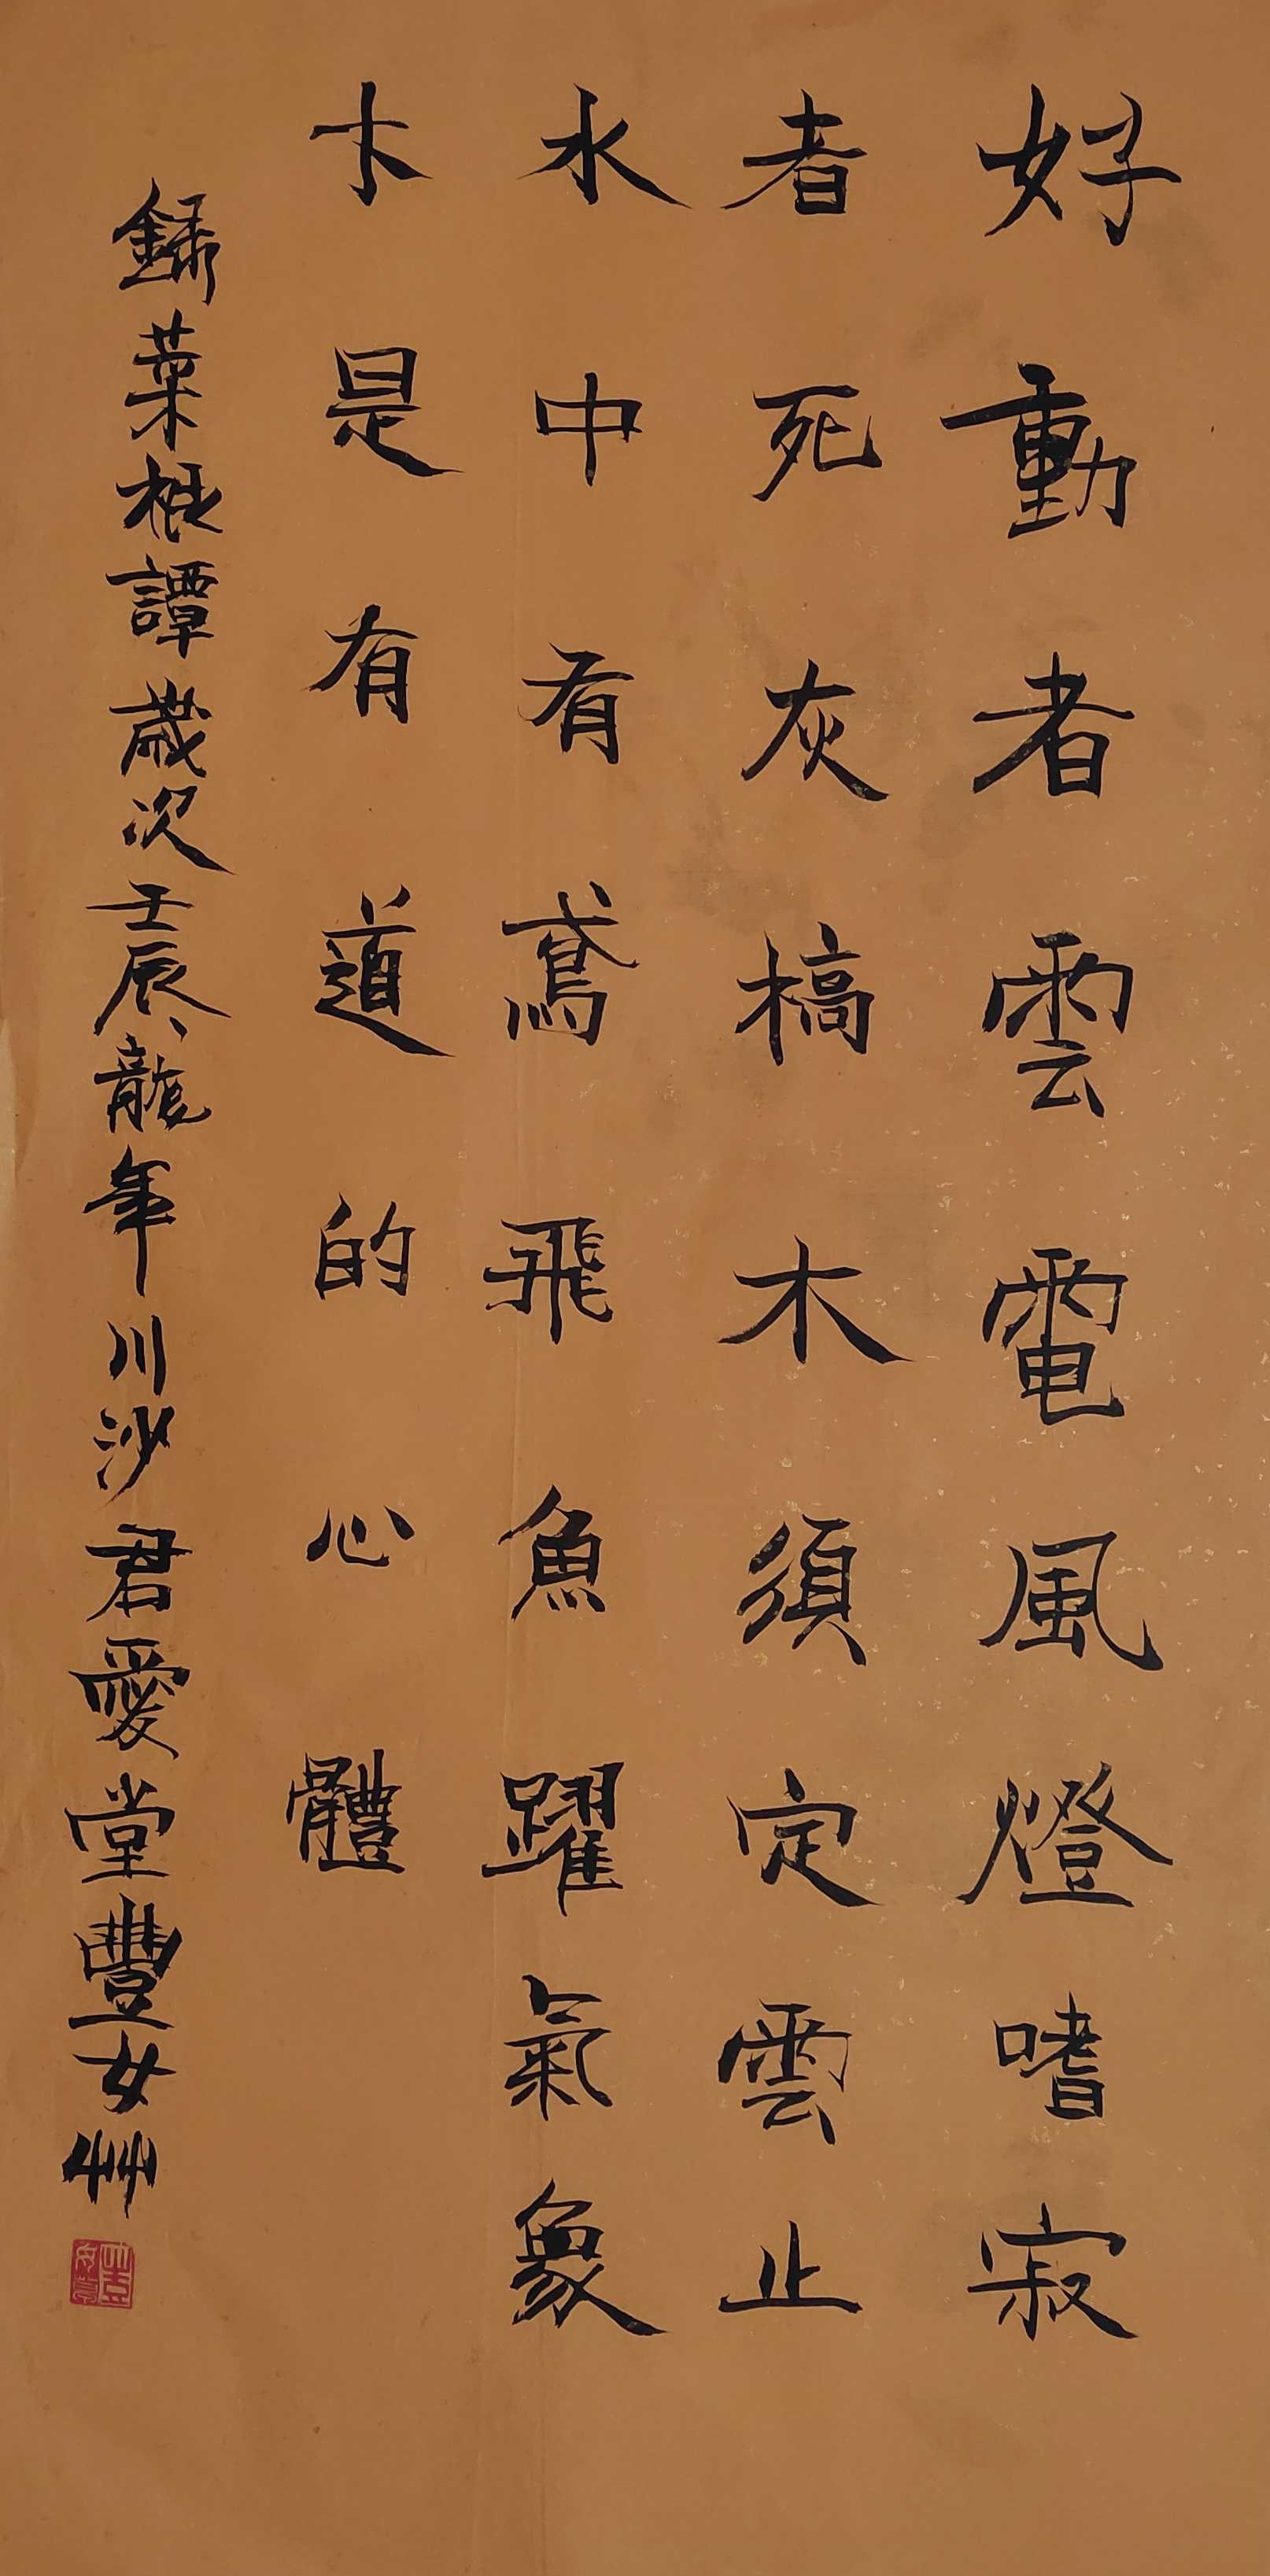 好動者雲電風燈嗜寂
者死灰槁木須定雲止
水中有鳶飛魚躍氣象
卞是有道的心體
錄菜根譚歲次壬辰龍年川沙君愛堂豐女艸